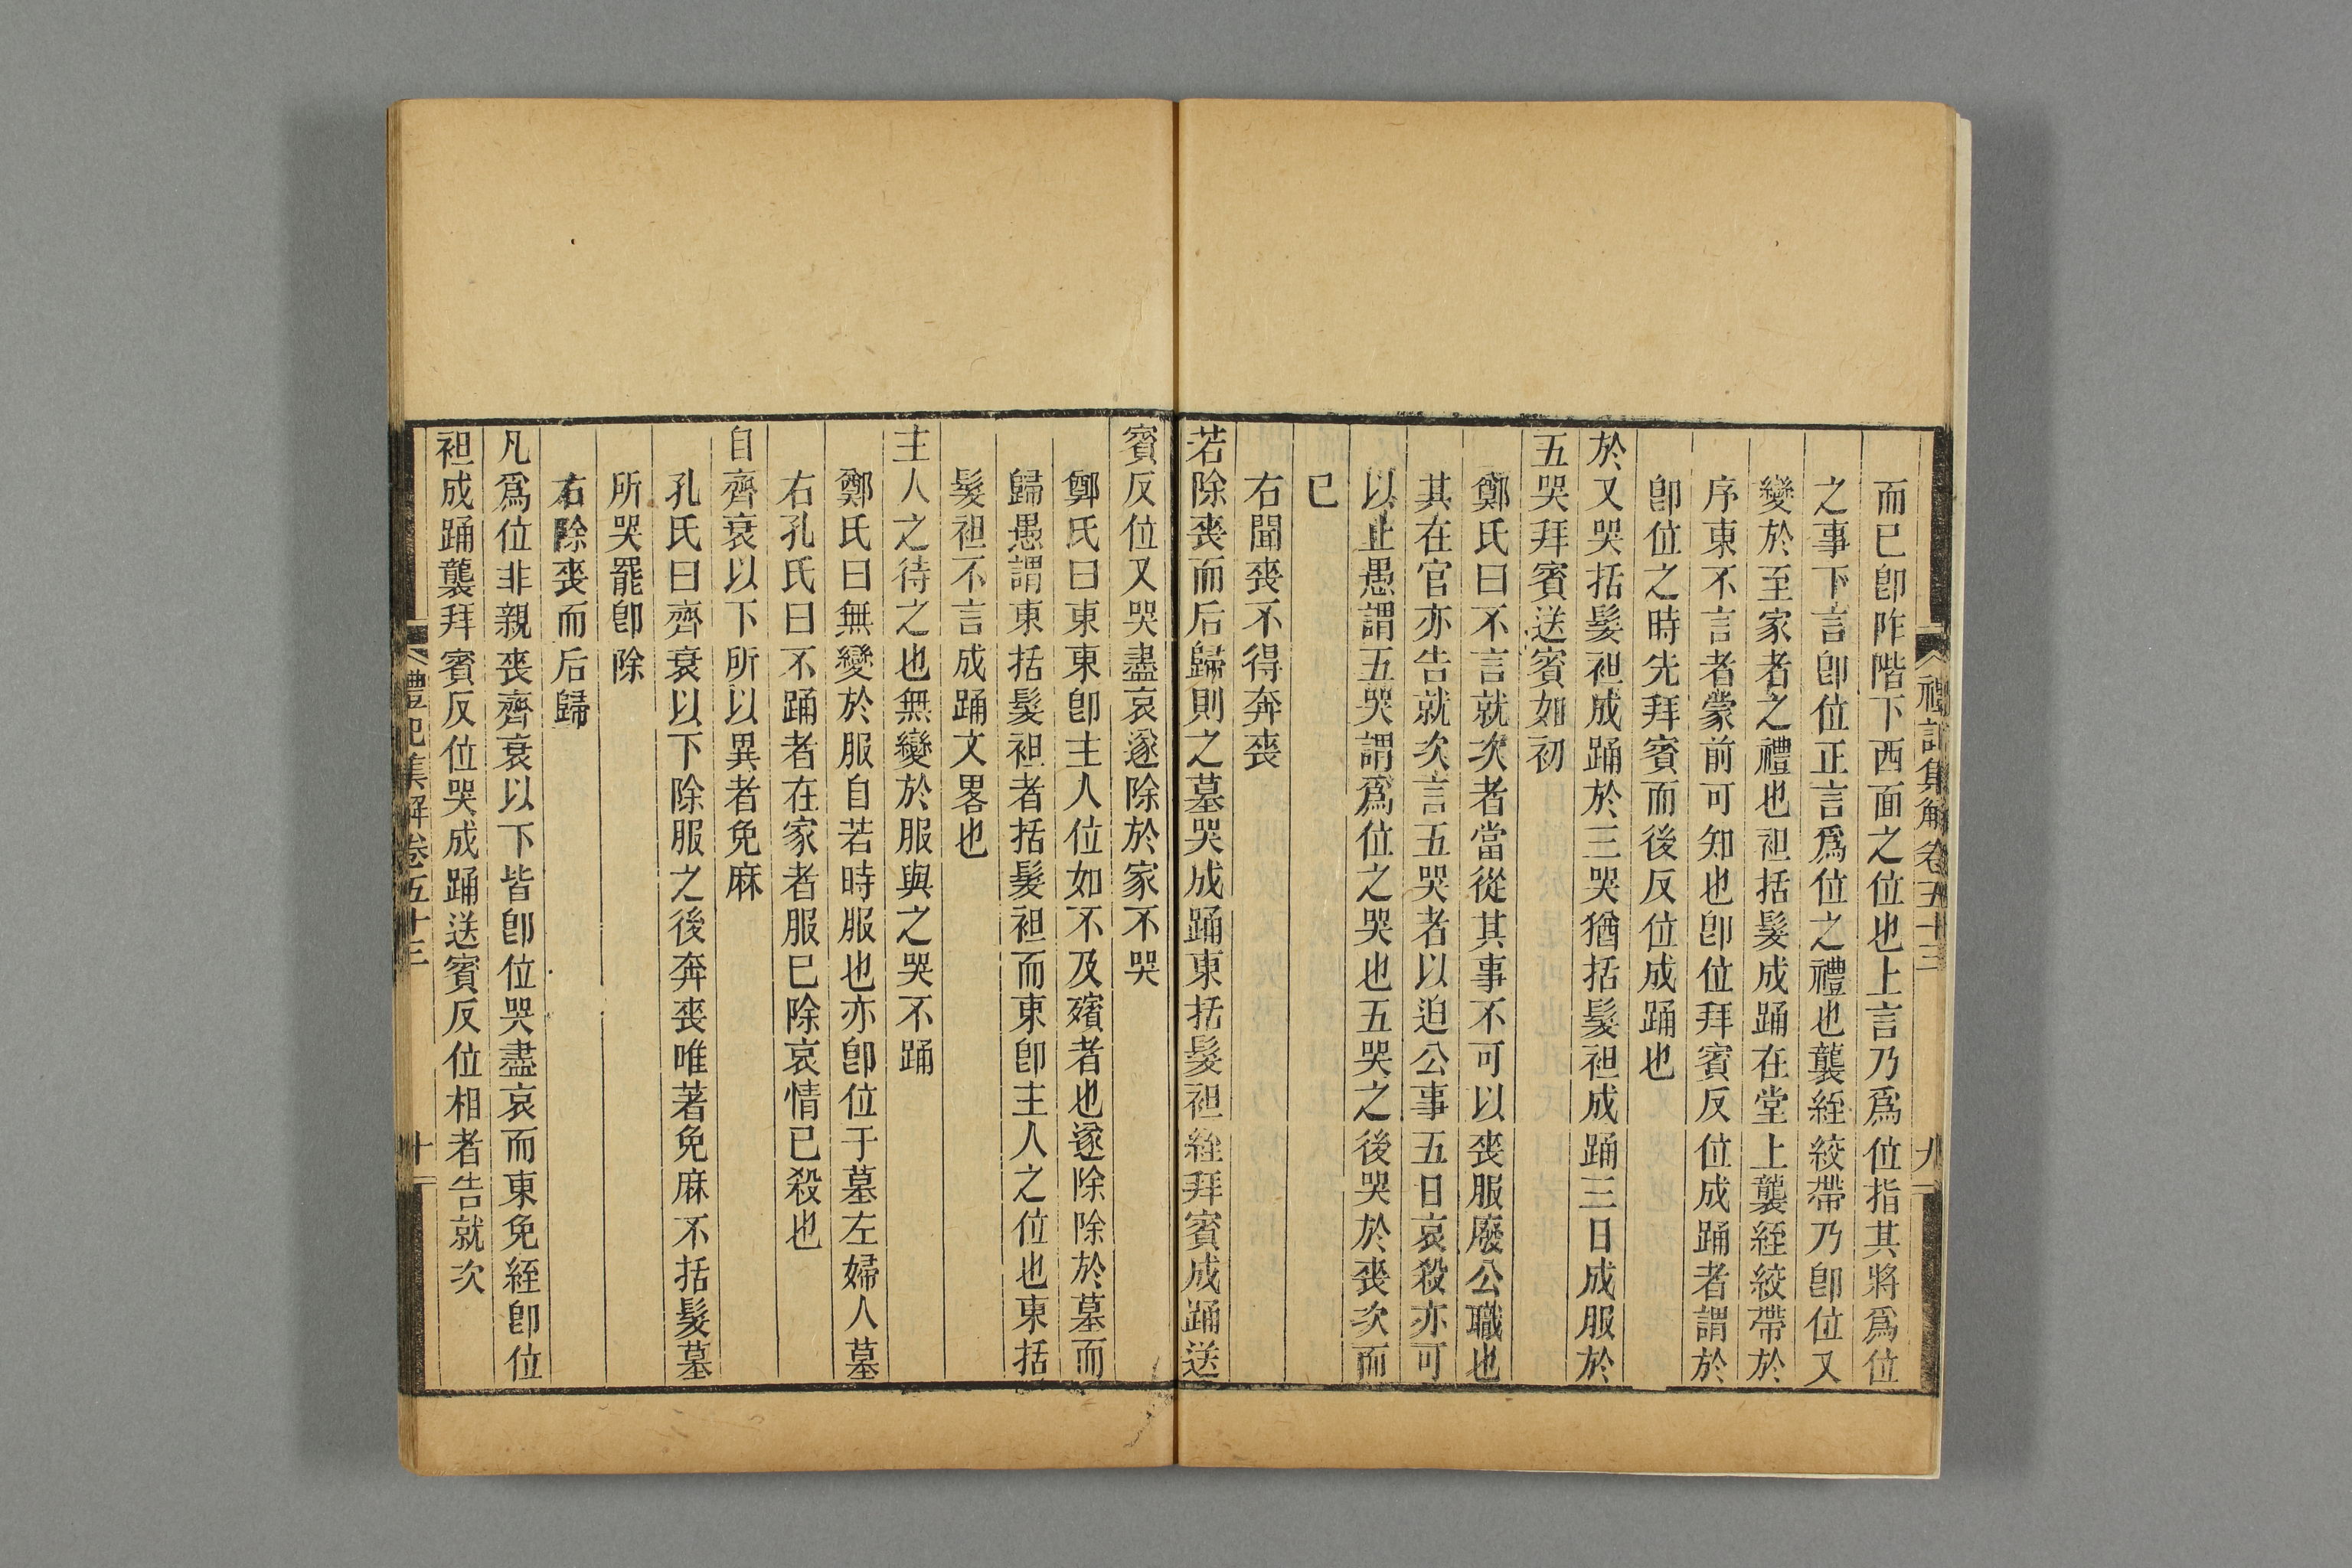 禮記集解卷五十三
九
而已卽阼階下西面之位也上言乃爲位指其將爲位
之事下言卽位正言爲位之禮也襲絰絞帶乃卽位又
變於至家者之禮也袒括髮成踊在堂上襲絰絞帶於
序東不言者蒙前可知也卽位拜賓反位成踊者謂於
卽位之時先拜賓而後反位成踊也
於又哭括髮袒成踊於三哭猶括髮袒成踊三日成服於
五哭拜賓送賓如初
鄭氏曰不言就次者當從其事不可以喪服廢公職也
其在官亦告就次言五哭者以迫公事五日哀殺亦可
以止愚謂五哭謂爲位之哭也五哭之後哭於喪次而
已
右聞喪不得奔喪
若除喪而后歸則之墓哭成踊東括髮袒絰拜賓成踊送
賓反位又哭盡哀遂除於家不哭
鄭氏曰東東卽主人位如不及殯者也遂除除於墓而
歸愚謂東括髮袒者括髮袒而東卽主人之位也東括
髮袒不言成踊文畧也
主人之待之也無變於服與之哭不踊
鄭氏曰無變於服自若時服也亦卽位于墓左婦人墓
右孔氏曰不踊者在家者服已除哀情已殺也
自齊衰以下所以異者免麻
孔氏曰齊衰以下除服之後奔喪唯著免麻不括髮墓
所哭罷卽除
右除喪而后歸
凡爲位非親喪齊衰以下皆卽位哭盡哀而東免絰卽位
袒成踊襲拜賓反位哭成踊送賓反位相者告就次
禮記集解卷五十三
十